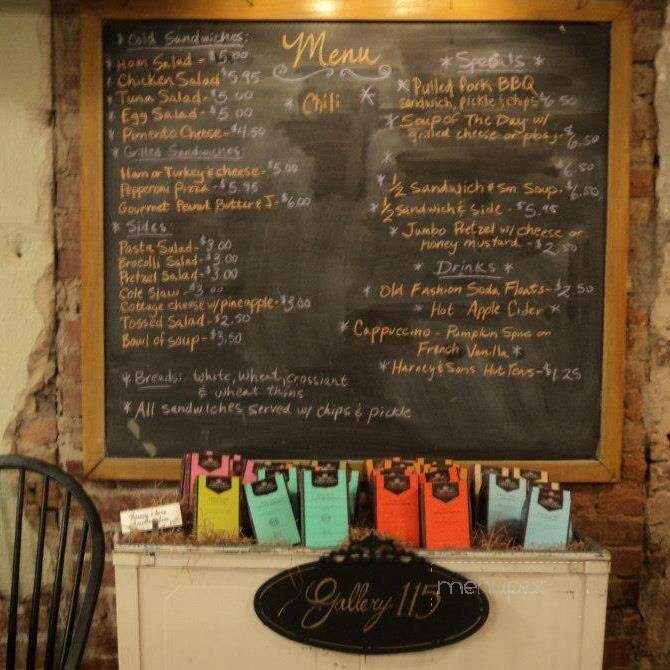 Menu
* Cold Sandwiches:
* Ham Salad - $5.00
* Chicken Salad $5.95
* Tuna Salad - $5.00
* Egg Salad - $5.00
* Pimento Cheese - $4.50
* Grilled Sandwiches
Ham or Turkey & cheese - $5.00
Pepperoni Pizza - $5.95
Gourmet Peanut Butter & J - $6.00
* Sides:
Pasta Salad - $3.00
Brocolli Salad - $3.00
Pretzel Salad - $3.00
Cole Slaw - $3.00
Cottage cheese w/ pineapple - $3.00
Tossed Salad - $2.50
Bowl of soup - $3.50
* Breads: White, wheat, crossiant
& wheat thins
* All sandwiches served w/ chips & pickle
* Chili *
* Specials *
* Pulled Pork BBQ
sandwich, pickle & chips $6.50
* Soup of The Day w/
grilled cheese or pb&j - $6.50
* $6.50
* 1/2 Sandwich & Sm Soup - $6.50
* 1/2 Sandwich & Side - $5.95
* Jumbo Pretzel w/ cheese or
honey mustard - $2.50
* Drinks *
* Old Fashion Soda Floats - $2.50
* Hot Apple Cider *
* Cappuccino - Pumpkin Spice or
French Vanilla *
* Harney & Sons Hot Teas - $1.25
Gallery 115
menupix